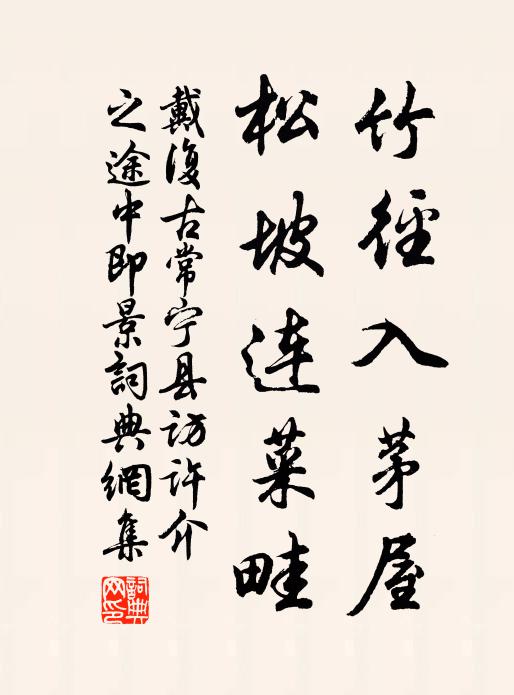 竹徑入茅屋
松坡連菜畦
戴復古常宁县访許介
之途中即景詞典網集
詞典网印